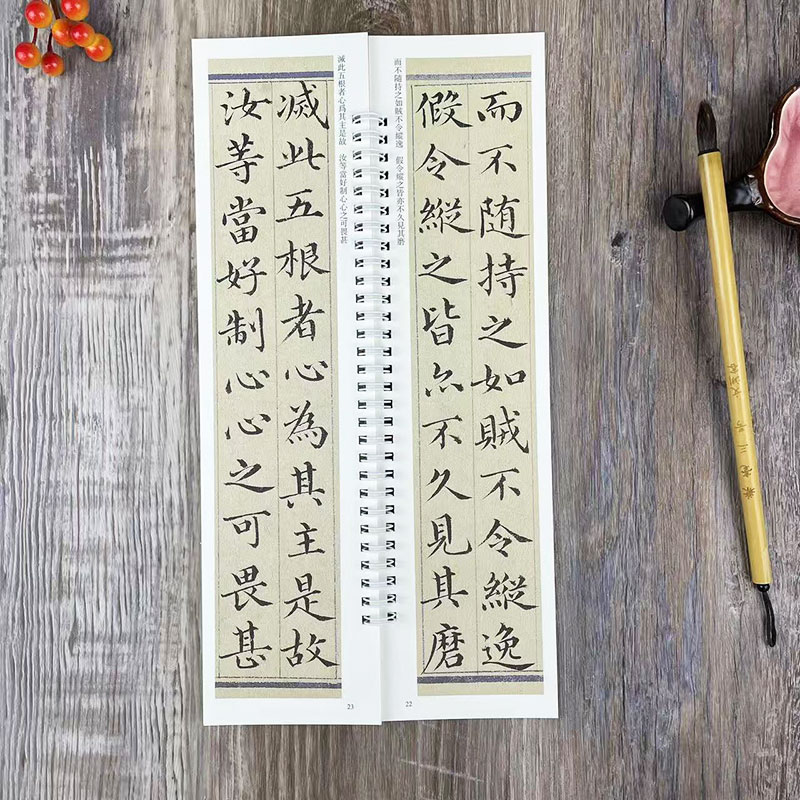 而不随持之如賊不令縱逸
假令縱之皆亦不久見其磨
而不隨持之如賊不令縱逸　假令縱之皆亦不久見其磨
22
滅此五根者心爲其主是故　汝等當好制心心之可畏甚
滅此五根者心為其主是故
汝等當好制心心之可畏甚
23